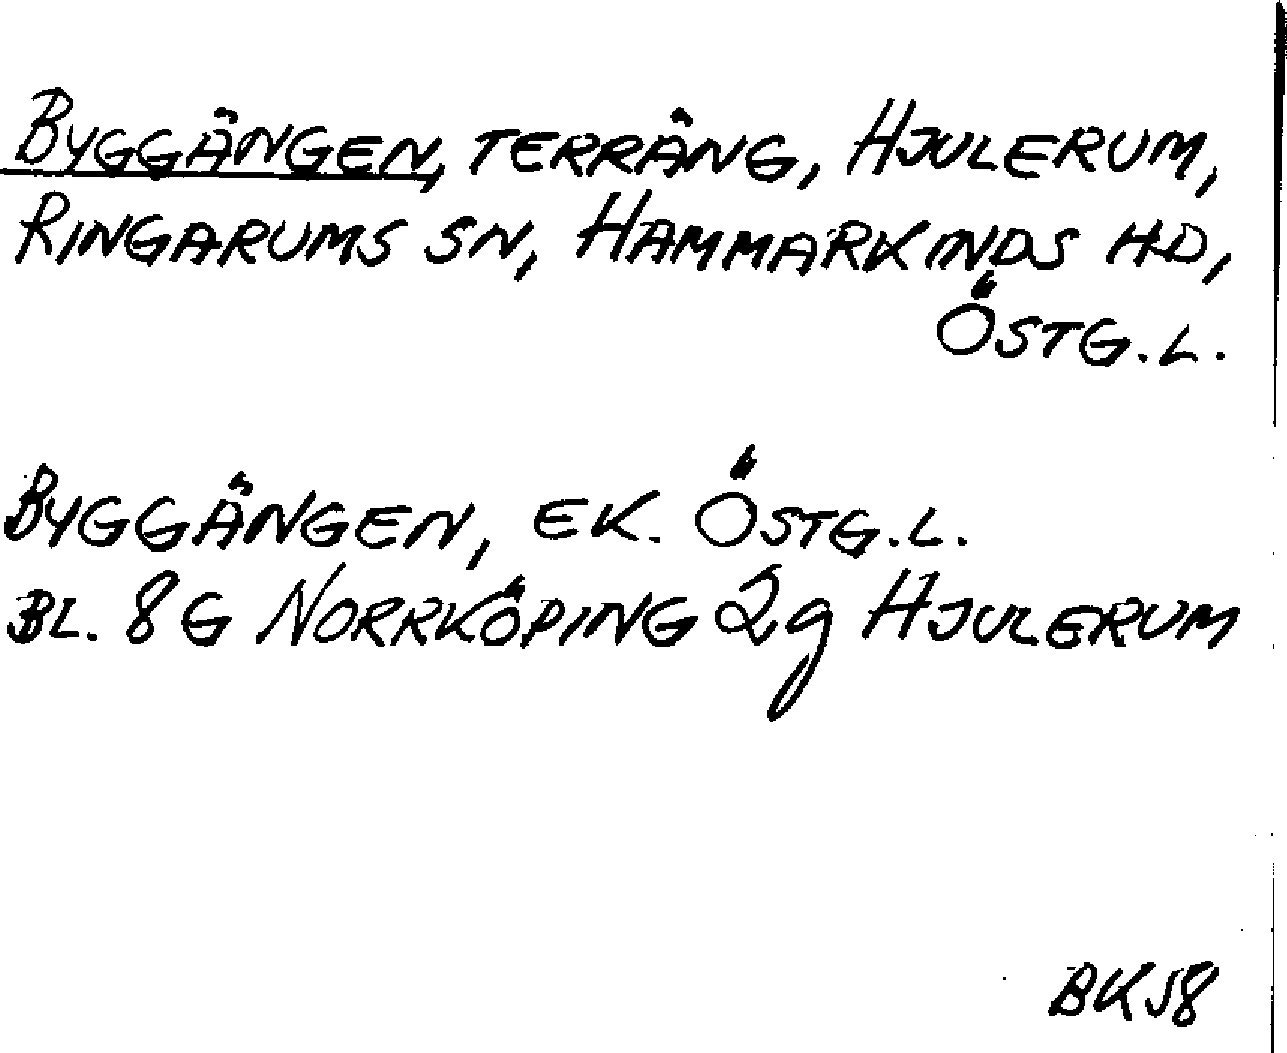 BYGGÄNGEN, TERRÄNG, HJULERUM,
RINGARUMS SN, HAMMARKINDS HD,
ÖSTG.L.
BYGGÄNGEN, EK. ÖSTG.L.
BL. 8G NORRKÖPING 2g HJULERUM
BKS8